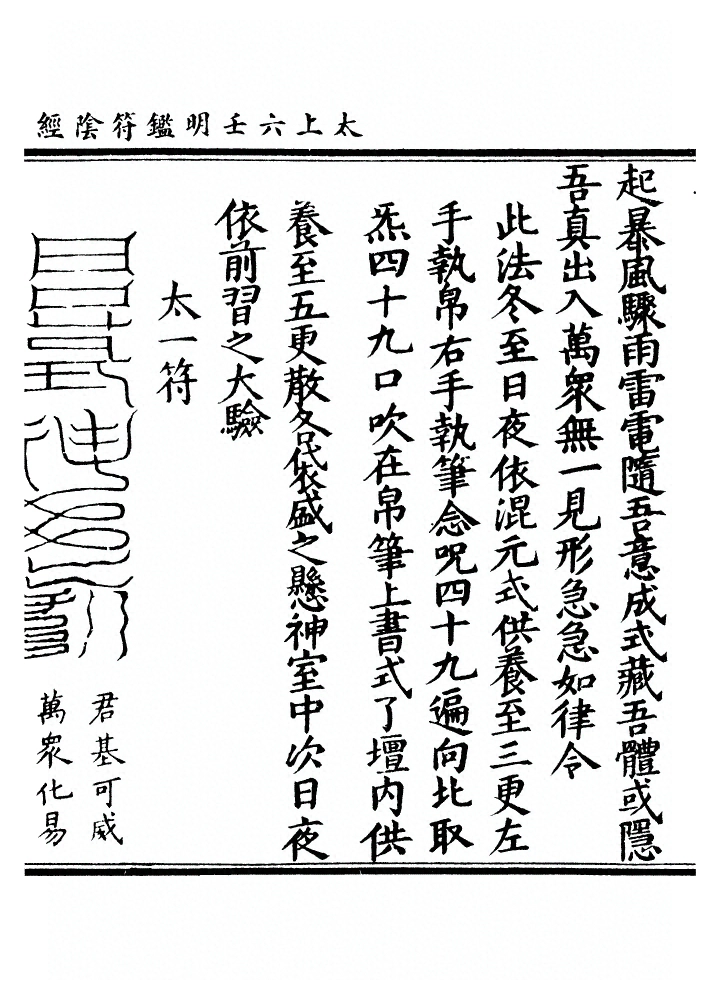 太上六壬明鑑符陰經
起暴風驟雨雷電隨吾意成式藏吾體或隱
吾真出入萬衆無一見形急急如律令
此法冬至日夜依混元式供養至三更左
手執帛右手執筆念呪四十九遍向北取
炁四十九口吹在帛筆上書式了壇內供
養至五更散各袋盛之懸神室中次日夜
依前習之大驗
太一符
君基可威
萬衆化易